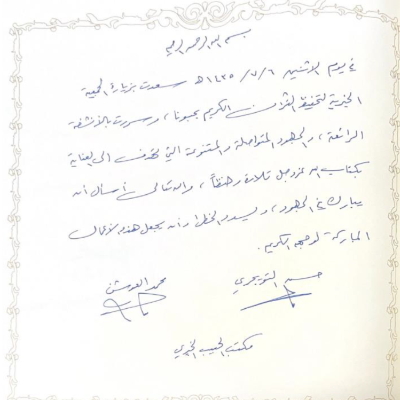 بسم الله الرحمن الرحيم
في يوم الاثنين ١٤٣٥/٧/٦هـ سعدت بزيارة الجمعية
الخيرية لتحفيظ القرآن الكريم بحبونا، وسررت بالأنشطة
الرائعة، والجهود المتواصلة والمتنوعة التي تهدف الى العناية
بكتاب الله عزوجل تلاوة وحفظاً، والله تعالى أسأل أن
يبارك في الجهود، ويسدد الخطى وأن يجعل هذه الأعمال
المباركة لوجهه الكريم.
حسن التويجري
محمد العوشن
مكتب الحبيب الخيري